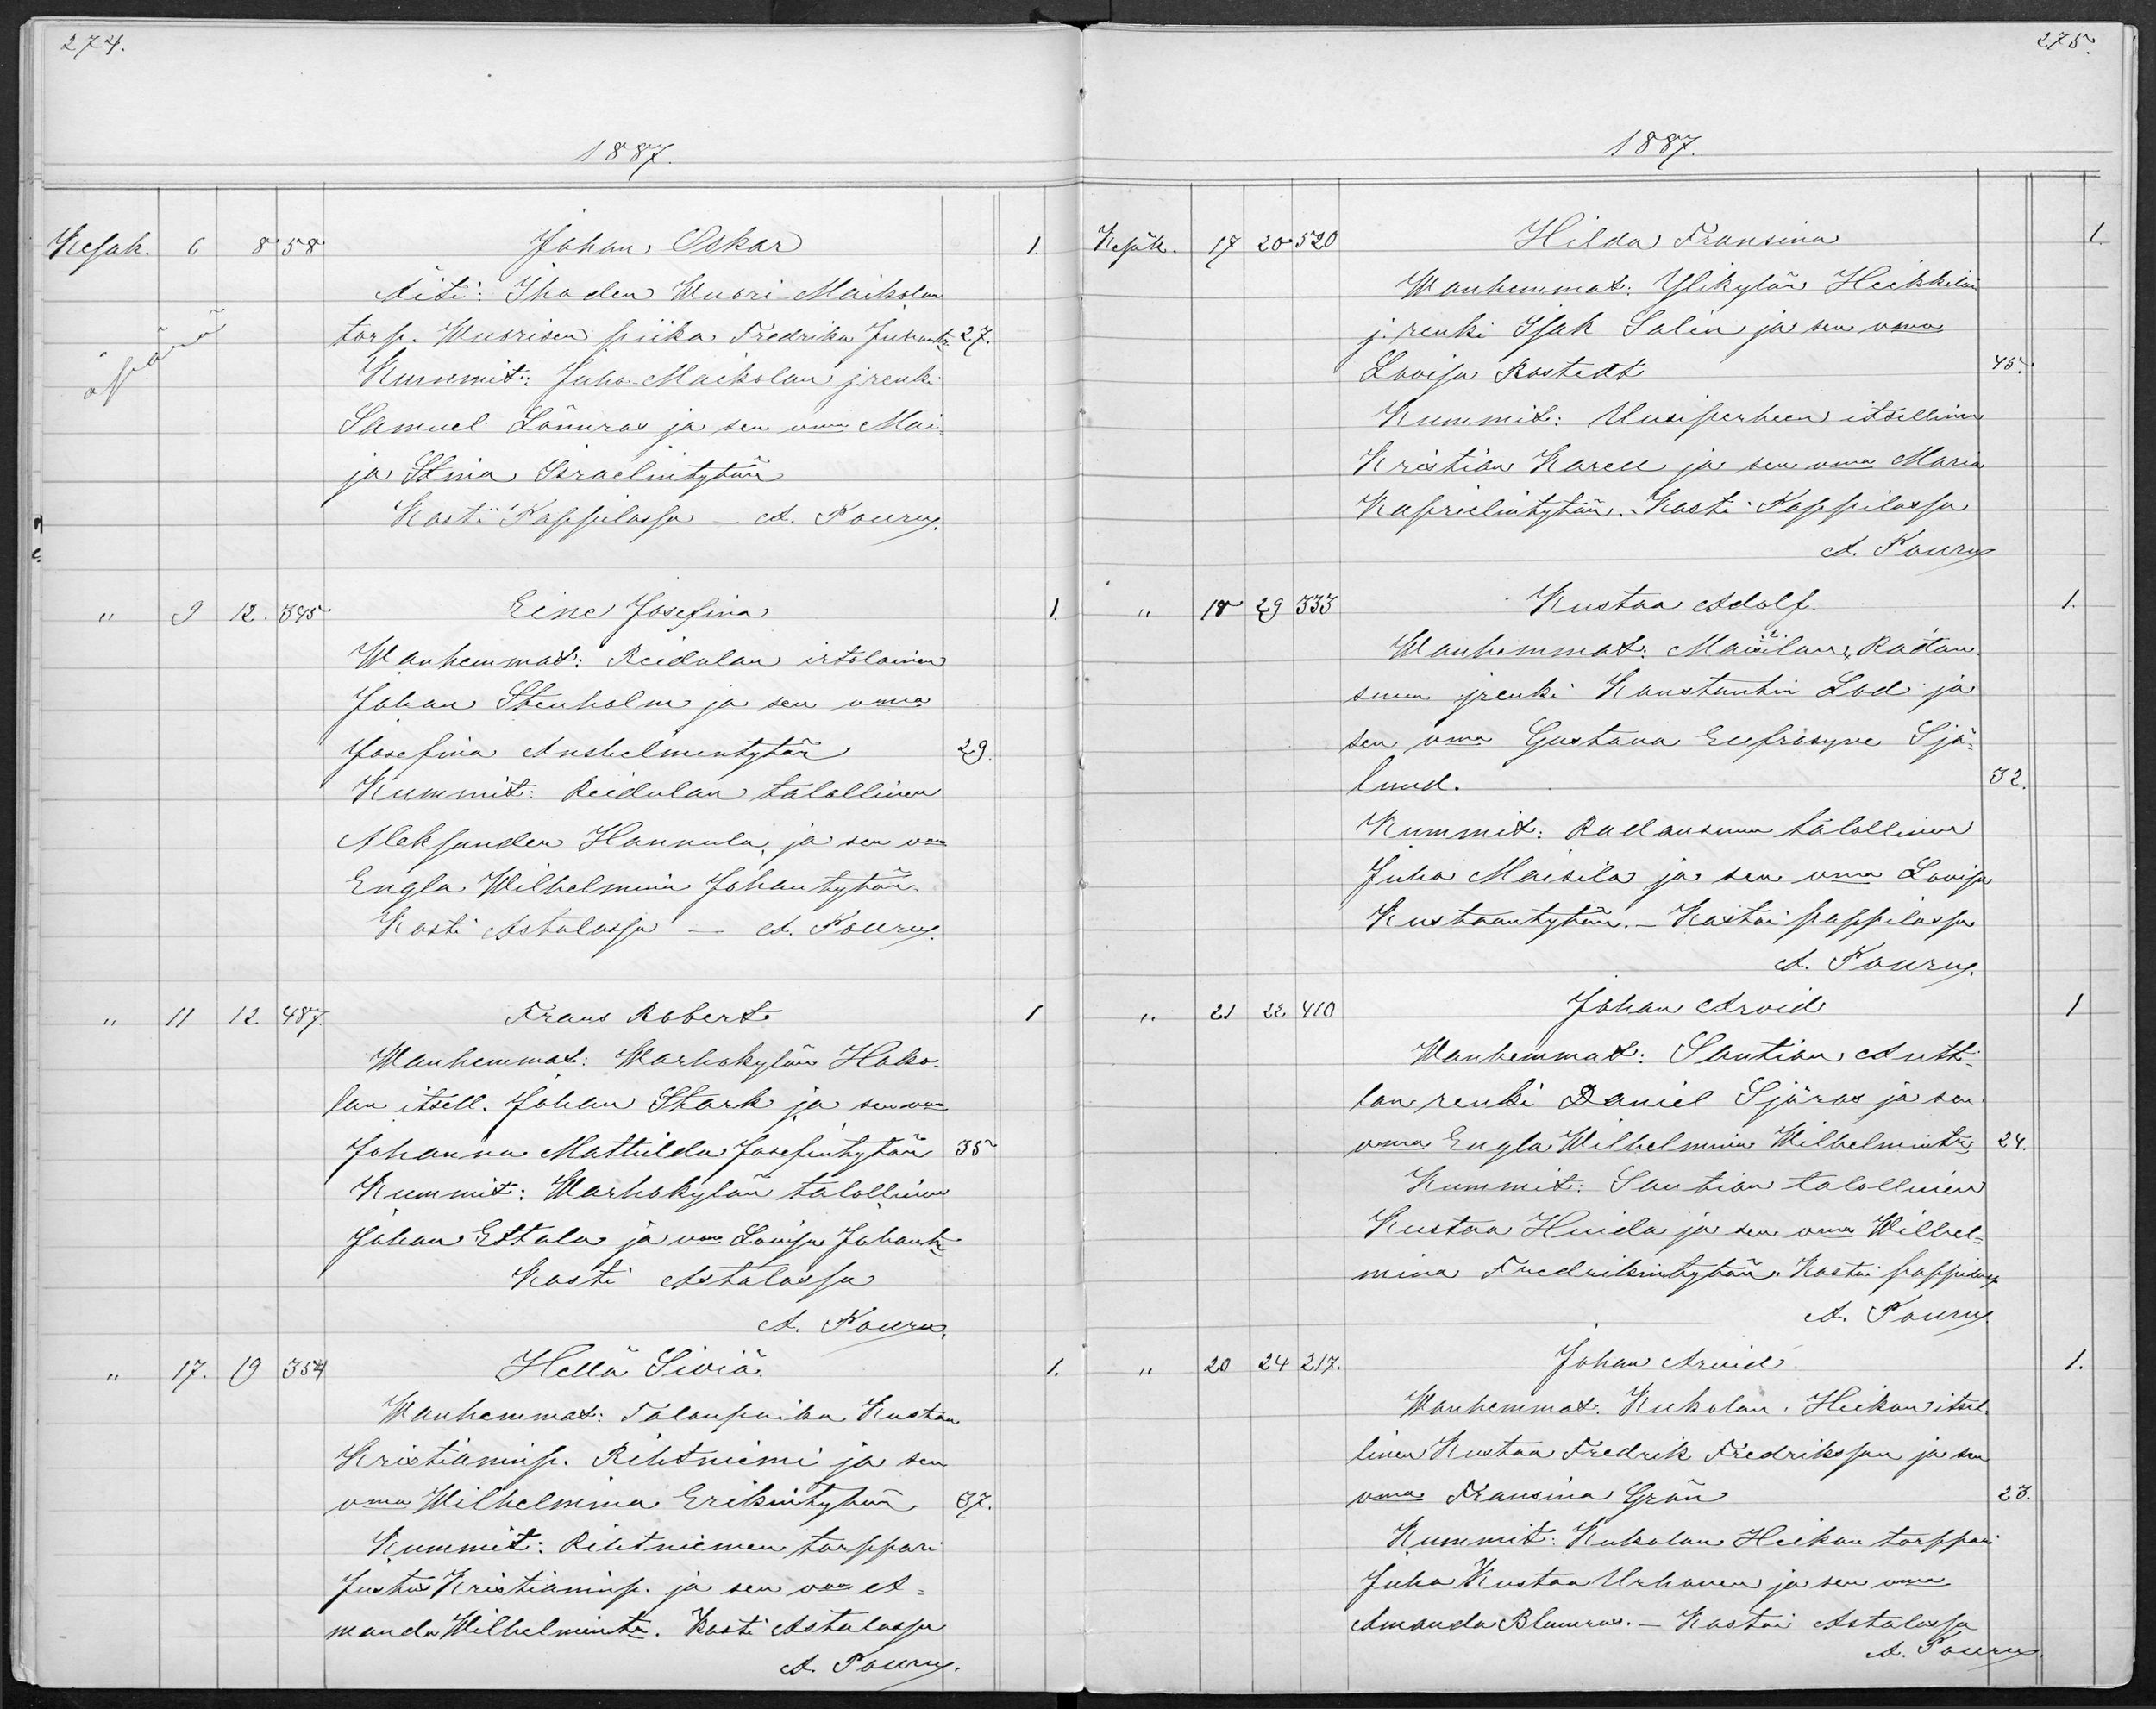 274.
1887.
Kesäk. 6 8 58 Johan Oskar 1.
Äiti: Ihoden Wuori-Maikolan
torp. Wuorisen piika Fredrika Juhantr 27.
äpärä
Kummit: Juho-Maikolan j. renki
Samuel Lönnros ja sen vmo Mai-
ja Stina Israelintytär
Kasti Pappilassa – A. Pouru.
" 9 12. 345 Eine Josefina 1.
Wanhemmat: Reidulan irtolainen
Johan Stenholm ja sen vmo
Josefina Anshelmintytär 29.
Kummit: Reidulan talollinen
Aleksander Hannula, ja sen vmo
Engla Wilhelmina Johantytär.
Kasti Astalassa – A. Pouru.
" 11 12 487. Frans Robert 1
Wanhemmat: Warhokylän Hako-
lan itsell. Johan Stark ja sen vmo
Johanna Mathilda Josefintytär 35
Kummit: Warhokylän talollinen
Johan Ettala ja vmo Lovisa Johantr
Kasti Astalassa
A. Pouru.
" 17. 19 354 Hellä Siviä. 1.
Wanhemmat: Talonpoika Kustaa
Kristianinp. Rihtniemi ja sen
vmo Wilhelmina Erikintytär 37.
Kummit: Rihtniemen torppari
Justus Kristianinp. ja sen vmo A-
manda Wilhelmintr. Kasti Astalassa
A. Pouru.
275.
1887.
Kesäk. 17 20 520 Hilda Fransina 1.
Wanhemmat: Ylikylän Heikkilän
j. renki Isak Salin ja sen vmo
Lovisa Rostedt 45.
Kummit: Uusiperheen itsellinen
Kristian Karell ja sen vmo Maria
Kaprielintytär. – Kasti Pappilassa
A. Pouru
" 18 29 333 Kustaa Adolf. 1.
Wanhemmat: Maisilan, Radan-
suun j renki Konstantin Lod ja
sen vmo Gustava Eufrosyne Sjö-
lund. 32.
Kummit: Radansuun talollinen
Juha Maisila ja sen vmo Lovisa
Kustaantytär. – Kastoi pappilassa
A. Pouru.
" 21 22 410 Johan Arvid 1
Wanhemmat: Santion Antti-
lan renki Daniel Sjöros ja sen
vmo Engla Wilhelmina Wilhelmintr 24.
Kummit: Santion talollinen
Kustaa Huida ja sen vmo Wilhel-
mina Fredrikintytär. Kastoi pappilassa
A. Pouru
" 20 24 217. Johan Arvid. 1.
Wanhemmat. Kukolan. Heikan itsel-
linen Kustaa Fredrik Fredriksson ja sen
vmo Fransina Grön 23.
Kummit: Kukolan Heikan torppari
Juha Kustaa Urhonen ja sen vmo
Amanda Blomros. – Kastoi Astalassa
A. Pouru.